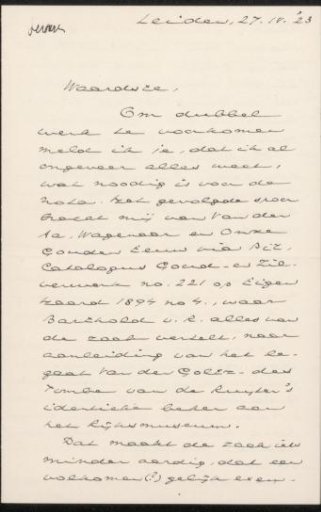 Leiden, 27.IV.'23
Waardste,
Om dubbel
werk te voorkomen
meld ik je, dat ik al
ongeveer alles weet,
wat noodig is voor de
nota. Het gevolgde spoor
bracht mij van Van der
Aa, Wagenaar en Onze
Gouden Eeuw via Biz.
Catalogus Goud- en Zil-
verwerk no. 221 op Eigen
Haard 1894 no 4., waar
Barthold v. R. alles van
de zaak vertelt, naar
aanleiding van het le-
gaat Van der Goltz - des
Tombe van de Ruyter's
identieke beker aan
het Rijksmuseum.
Dat maakt de zaak iets
minder aardig, dat een
volkomen(?) gelijk exem-